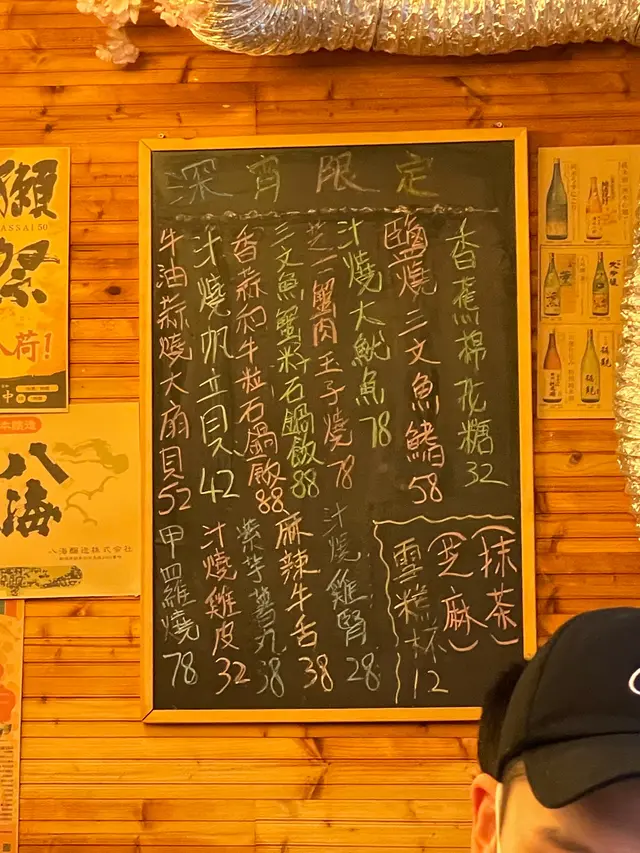 深宵限定
香蕉棉花糖 32
鹽燒三文魚鰭 58
汁燒大魷魚 78
芝士蟹肉玉子燒 78
三文魚蟹籽石鍋飯 88
香蒜和牛粒石鍋飯 88
汁燒帆立貝 42
牛油蒜燒大扇貝 52
(抹茶)
(芝麻)
雪糕杯 12
汁燒雞腎 28
麻辣牛舌 38
紫芋薯丸 38
汁燒雞皮 32
甲羅燒 78
獺祭
DASSAI 50
入荷!
八海
八海醸造株式会社